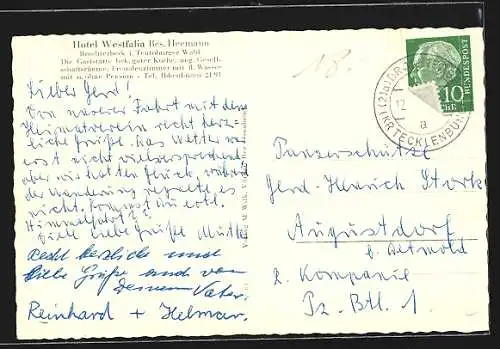 Hotel Westfalia Bes. Heemann
Brochterbeck i. Teutoburger Wald
Die Gaststätte bek. guter Küche, ang. Gesell-
schaftsräume, Fremdenzimmer mit fl. Wasser
mit u. ohne Pension - Tel. Ibbenbüren 2191
18.-
Lieber Gerd!
Von unserer Fahrt mit dem
Heimatverein recht herz-
liche Grüße. Das Wetter war
erst nicht vielversprechend
aber wir hatten Glück, während
der Wanderung regnete es
nicht. Kommst Du evtl.
Himmelfahrt??
Viele liebe Grüße Mutti
Recht herzliche und
liebe Grüße auch von
Deinem Vater.
Reinhard + Helmar.
DEUTSCHE BUNDESPOST
10
KR TECKLENBURG
12
a
Panzerschütze
Gerd-Heinrich Stork
Augustdorf
b. Detmold
2. Kompanie
Pz. Btl. 1.